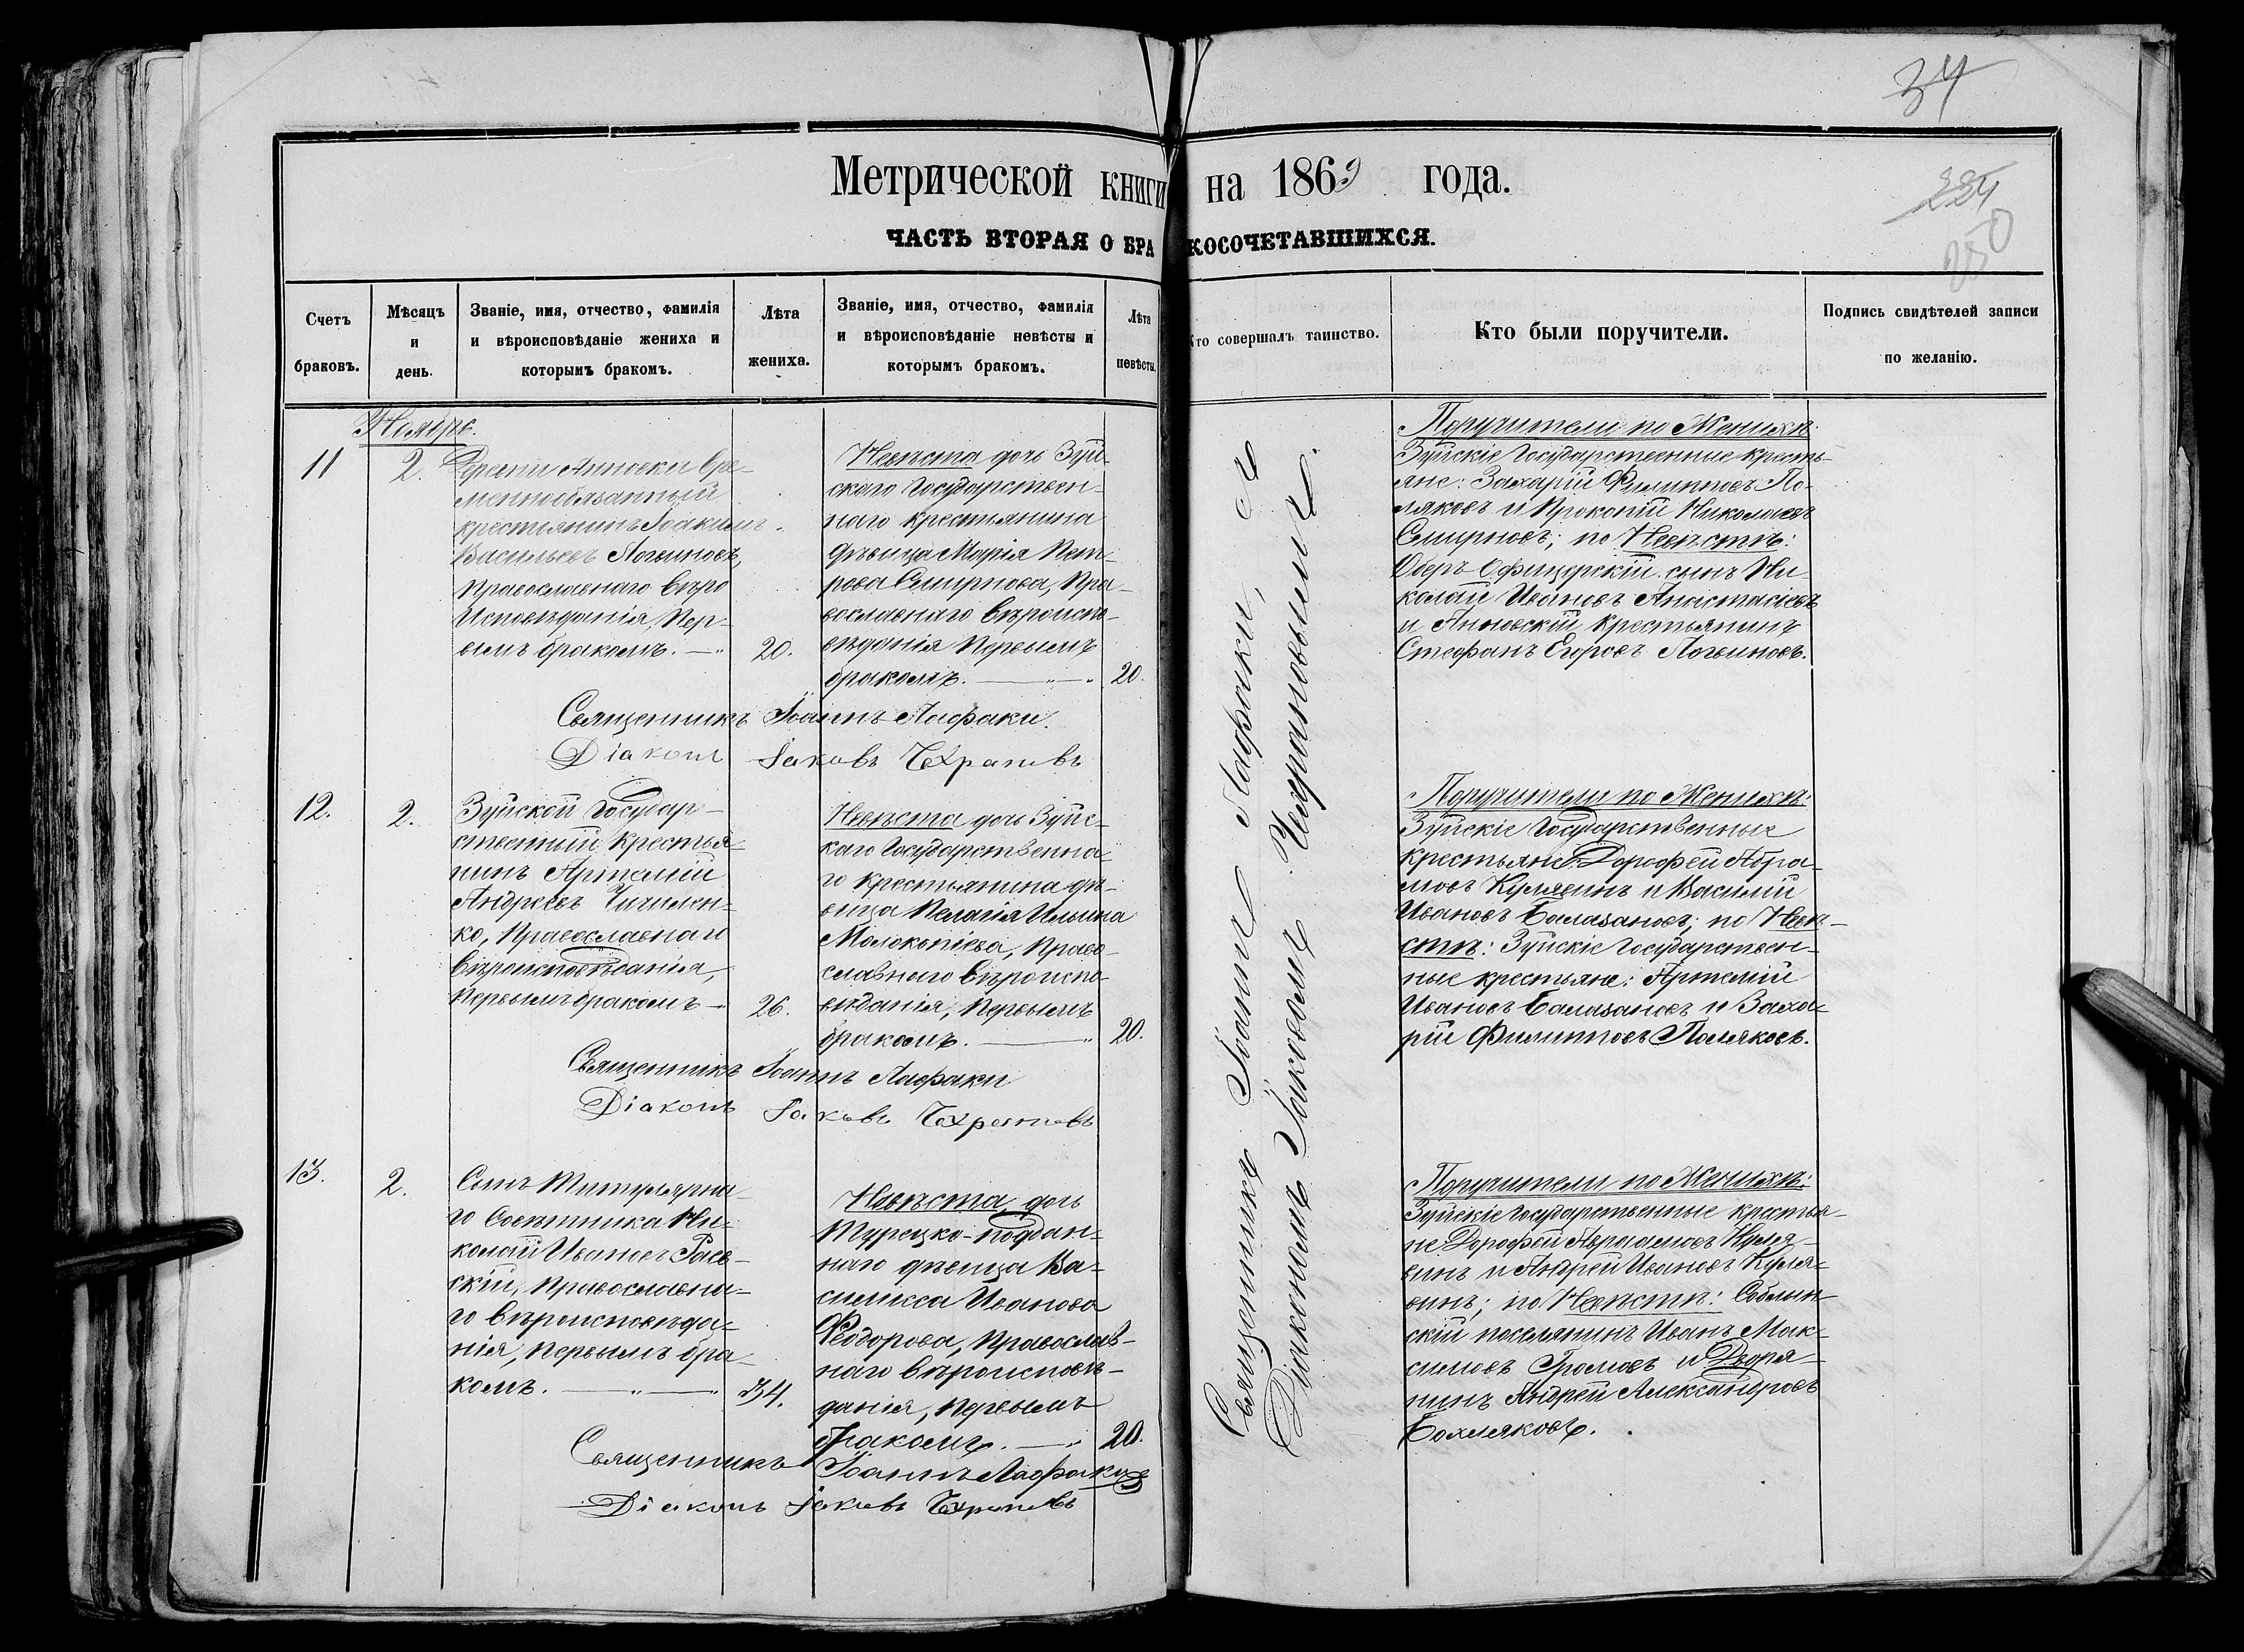 34
Метрической книги на 1869 года.
224
250
ЧАСТЬ ВТОРАЯ О БРАКОСОЧЕТАВШИХСЯ.
Счетъ браковъ.
Мѣсяцъ и день.
Званіе, имя, отчество, фамилія
и вѣроисповѣданіе жениха и
которымъ бракомъ.
Лѣта жениха.
Званіе, имя, отчество, фамилія
и вѣроисповѣданіе невѣсты и
которымъ бракомъ.
Лѣта невѣсты.
Кто совершалъ таинство.
Кто были поручители.
Подпись свидѣтелей записи
по желанію.
Ноябрь.
11
2.
Деревни Анновки вре-
меннообязанный
крестьянинъ Іоакимъ
Васильевъ Логвиновъ,
Православнаго Вѣро
Исповѣданія, Пер-
вымъ бракомъ.
20.
Невѣста дочь Зуй-
скаго Государствен-
наго крестьянина
дѣвица Марія Пет-
рова Смирнова, Пра-
вославнаго Вѣроиспо-
вѣданія Первымъ
бракомъ.
20.
Поручители по Женихѣ:
Зуйскіе Государственные кресть-
яне: Захарій Филипповъ По-
ляковъ и Прокопій Николаевъ
Смирновъ; по Невѣстѣ:
Оберъ Офицерскій сынъ Ни-
колай Ивановъ Анастасіевъ
и Анновскій крестьянинъ
Стефанъ Егоровъ Логвиновъ.
Священникъ Іоаннъ Лафаки.
Діаконъ Іаковъ Чехрановъ
12.
2.
Зуйской Государ-
ственный Крестья-
нинъ Артемій
Андреевъ Чигилен-
ко, Православнаго
Вѣроисповѣданія,
Первымъ бракомъ
26.
Невѣста дочь Зуйс-
каго Государственна-
го крестьянина дѣ-
вица Пелагія Ильина
Молокопіева, Право-
славнаго Вѣроиспо-
вѣданія, Первымъ
бракомъ.
20.
Поручители по Женихѣ:
Зуйскіе Государственные
крестьяне: Дорофей Абра-
мовъ Кулявинъ и Василій
Ивановъ Балазановъ; по Невѣ-
стѣ: Зуйскіе Государствен-
ные крестьяне: Артемій
Ивановъ Балазановъ и Заха-
рій Филипповъ Поляковъ.
Священникъ Іоаннъ Лафаки
Діаконъ Іаковъ Чехрановъ
13.
2.
Сынъ Титулярна-
го Совѣтника Ни-
колай Ивановъ Раев-
скій, Православна-
го Вѣроисповѣда-
нія, Первымъ бра-
комъ.
34.
Невѣста, дочь
Турецко-подан-
наго дѣвица Ва-
силисса Иванова
Феодорова, Православ-
наго вѣроисповѣ-
данія, Первымъ
бракомъ.
20.
Поручители по Женихѣ:
Зуйскіе Государственные крестья-
не: Дорофей Авраамовъ Куля-
винъ и Андрей Ивановъ Куля-
винъ; по Невѣстѣ:
скій поселянинъ Иванъ Мак-
симовъ Громовъ и Дворя-
нинъ Андрей Александровъ
Священникъ Іоаннъ Лафаки
Діаконъ Іаковъ Чехрановъ
Священникъ Іоаннъ Лафаки, съ
Діакономъ Іаковомъ Чехрановымъ.